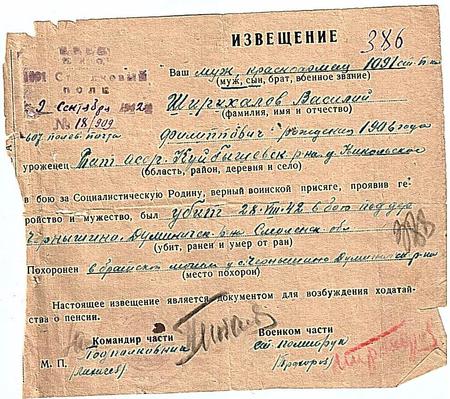 ИЗВЕЩЕНИЕ 386
1091 Стрелковый
ПОЛК
2 Сентября 1942 г.
№ 18/909
Ваш муж, красноармеец 1091 стр. п-ка
(муж, сын, брат, военное звание)
Ширхалов Василий
(фамилия, имя и отчество)
филиппович рождения 1906 года
уроженец Тат. ССР Куйбышевск. р-на д. Никольское
(область, район, деревня и село)
в бою за Социалистическую Родину, верный воинской присяге, проявив ге-
ройство и мужество, был убит 28.VIII.42 в бою под дер
Чернышина Думиничск. р-на Смоленск. обл.
(убит, ранен и умер от ран)
Похоронен в братской могиле д. Чернышино Думинич. р-на
(место похорон)
Настоящее извещение является документом для возбуждения ходатай-
ства о пенсии.
Командир части Военком части
Подполковник ст. политрук
М. П.